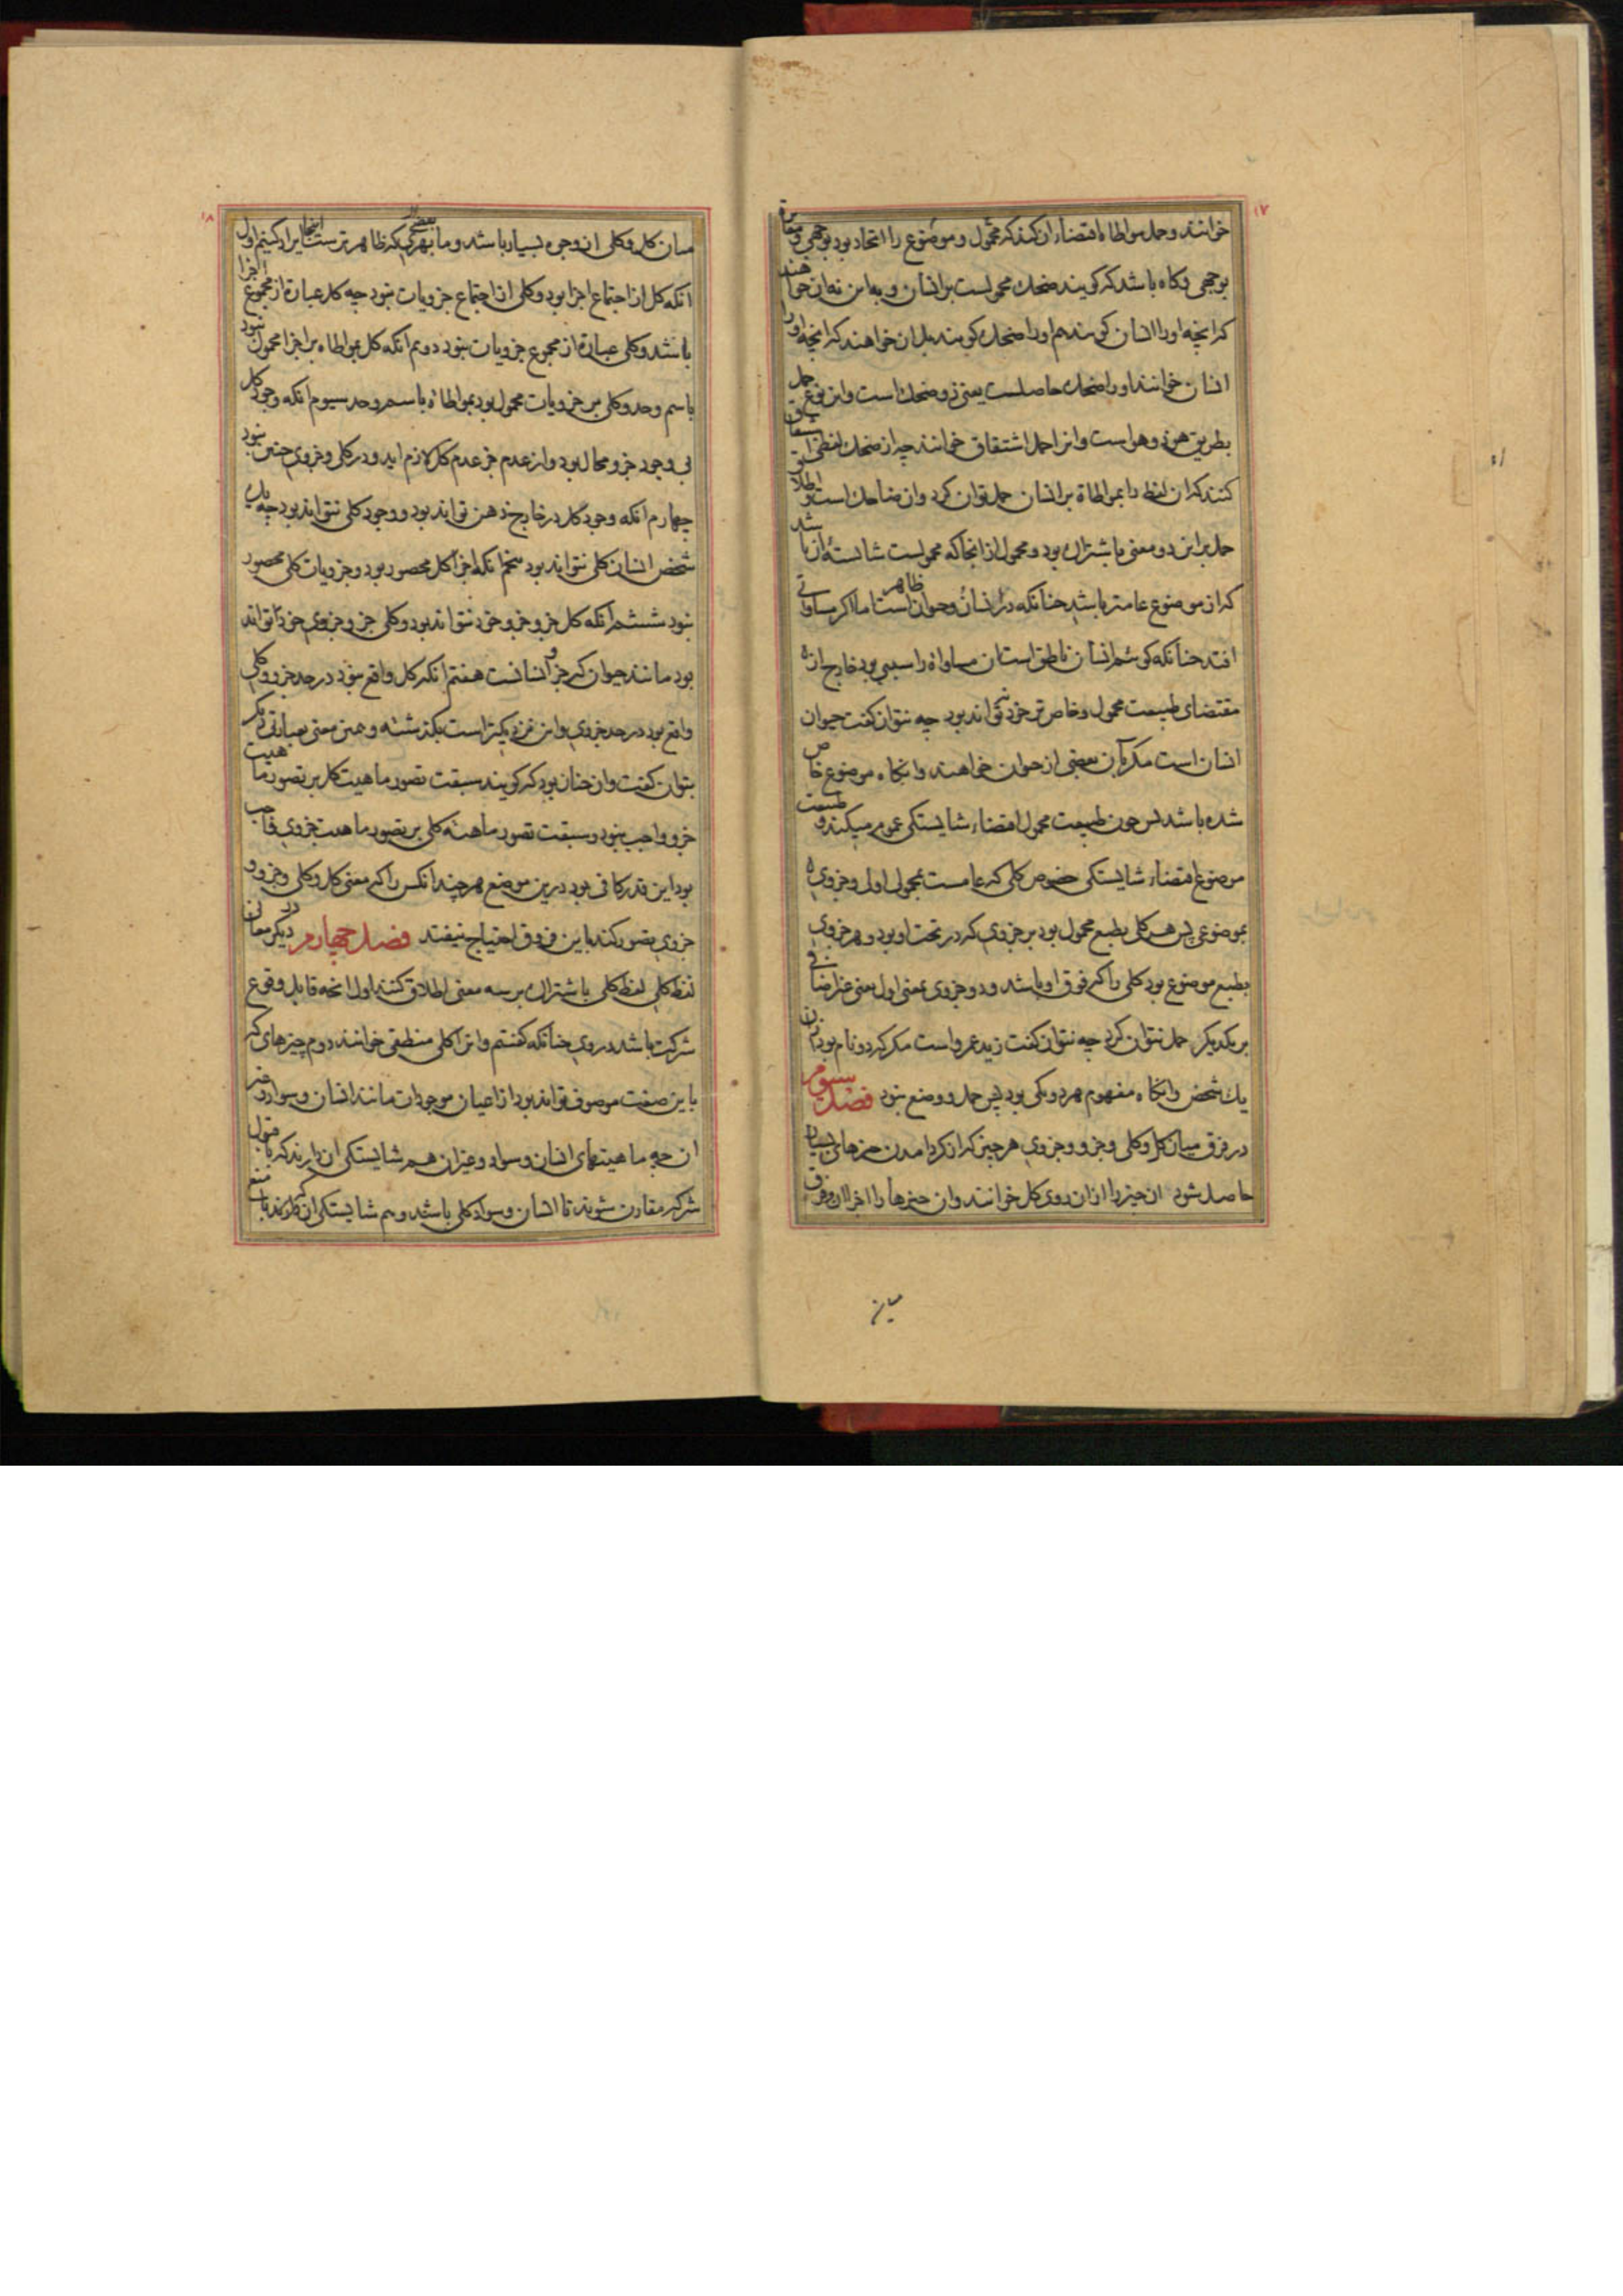 ١٧
خوانند و حمل مواطاه اقتضاء ان کند که محمول و موضوع را اتحاد بود بوجهی و مغایرة
بوجهی و کاه باشد که کویند ضحك محمولست بر انسان و به این نه ان خواهند
که انچه او را انسان کویند هم او را ضحك کویند بل ان خواهند که انچه او را
انسان خوانند او را ضحك حاصلست یعنی ذو ضحك است و این نوع حمل
بطریق هو ذو هو است و انرا حمل اشتقاق خوانند چه از ضحك لفظی اشتقاق
کنند که ان لفظ را بمواطاة بر انسان حمل توان کرد و ان ضاحك است و اطلاق
حمل بر این دو معنی باشتراك بود و محمول از انجا که محمولست شایسته ان باشد
که از موضوع عامتر باشد چنانکه در انسان و حیوان ظاهر است اما اکر مساواتی
افتد چنانکه کوئیم انسان ناطق است ان مساواة را سببی بود خارج از
مقتضای طبیعت محمول و خاص تر خود نتواند بود چه نتوان کفت حیوان
انسان است مکر بآن بعضی از حیوان خواهند و انکاه موضوع خاص
شده باشد پس چون طبیعت محمول اقتضاء شایستکی عموم میکند و طبیعت
موضوع اقتضاء شایستکی خصوص کلی که عامست بمحمولی اولی و جزوی
بموضوعی پس هر کلی بطبع محمول بود بر جزوی که در تحت او بود و هر جزوی
بطبع موضوع بود کلی را که فوق او باشد و دو جزوی بمعنی اول یعنی غیر اضافی
بر یکدیکر حمل نتوان کرد چه نتوان کفت زید عمرو است مکر که دو نام بود ان
یك شخص و انکاه مفهوم هر دو یکی بود پس حمل و وضع نبود فصل سیوم
در فرق میان کل و کلی و جزو و جزوی هر چیز که از کرد امدن چیزهای بسیار
حاصل شود ان چیز را از ان روی کل خوانند و ان چیزها را اجزا ان و فرق
١٨
میان کل و کلی از وجوه بسیار باشد و ما بعضی که ظاهرترست اینجا ایراد کنیم اول
انکه کل از اجتماع اجزا بود و کلی از اجتماع جزویات نبود چه کل عبارة از مجموع اجزا
باشد و کلی عبارة از مجموع جزویات نبود دویم انکه کل بمواطاه بر اجزا محمول نبود
باسم و حد و کلی بر جزویات محمول بود بمواطاه باسم و حد سیوم انکه وجود کل
بی وجود جزو محال بود و از عدم جز عدم کل لازم اید و در کلی و جزوی چنین نبود
چهارم انکه وجود کل در خارج ذهن تواند بود و وجود کلی نتواند بود چه یك
شخص انسان کلی نتواند بود پنجم انکه اجزا کل محصور بود و جزویات کلی محصور
نبود ششم انکه کل جزو جزو خود نتواند بود و کلی جز و جزوی خود تواند
بود مانند حیوان که جزو انسانست هفتم انکه کل واقع نبود در حد جزو و کلی
واقع بود در حد جزوی و این نزدیکتر است بکذشته و همین معنی بعبارتی دیکر
بتوان کفت و ان چنان بود که کویند سبقت تصور ماهیت کل بر تصور ماهیت
جزو واجب نبود و سبقت تصور ماهیة کلی بر تصور ماهیت جزوی واجب
بود این قدر کافی بود درین موضع هر چند انکس را که معنی کل و کلی و جزو و
جزوی تصور کند باین فروق احتیاج نیفتد فصل چهارم در دیکر معانی
لفظ کلی لفظ کلی باشتراك بر سه معنی اطلاق کنند اول انچه قابل وقوع
شرکت باشد در وی چنانکه کفتیم و انرا کلی منطقی خوانند دوم چیزهای که
باین صفت موصوف تواند بود از اعیان موجودات مانند انسان و سواد و غیر
ان چه ماهیتهای انسان و سواد و غیر ان هم شایستکی ان دارند که با قبول
شرکه مقارن شوند تا انسان و سواد کلی باشد و هم شایستکی ان دارند که با منع